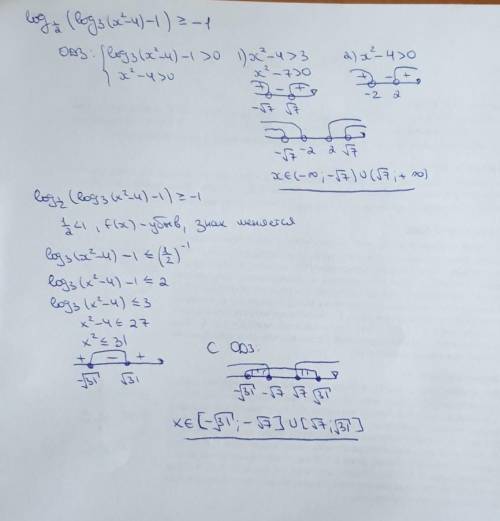 log½(log₃(x²-4)-1) ≥ -1
ОДЗ: { log₃(x²-4)-1>0
x²-4>0
1) x²-4>3
x²-7>0
+ - +
-√7 √7
2) x²-4>0
+ - +
-2 2
-√7 -2 2 √7
x∈(-∞;-√7)∪(√7;+∞)
log½(log₃(x²-4)-1) ≥ -1
½<1, f(x) - убыв, знак меняется
log₃(x²-4)-1 ≤ (½)⁻¹
log₃(x²-4)-1 ≤ 2
log₃(x²-4) ≤ 3
x²-4 ≤ 27
x² ≤ 31
+ - +
-√31 √31
С ОДЗ:
-√31 -√7 √7 √31
x∈[-√31;-√7]∪[√7;√31]